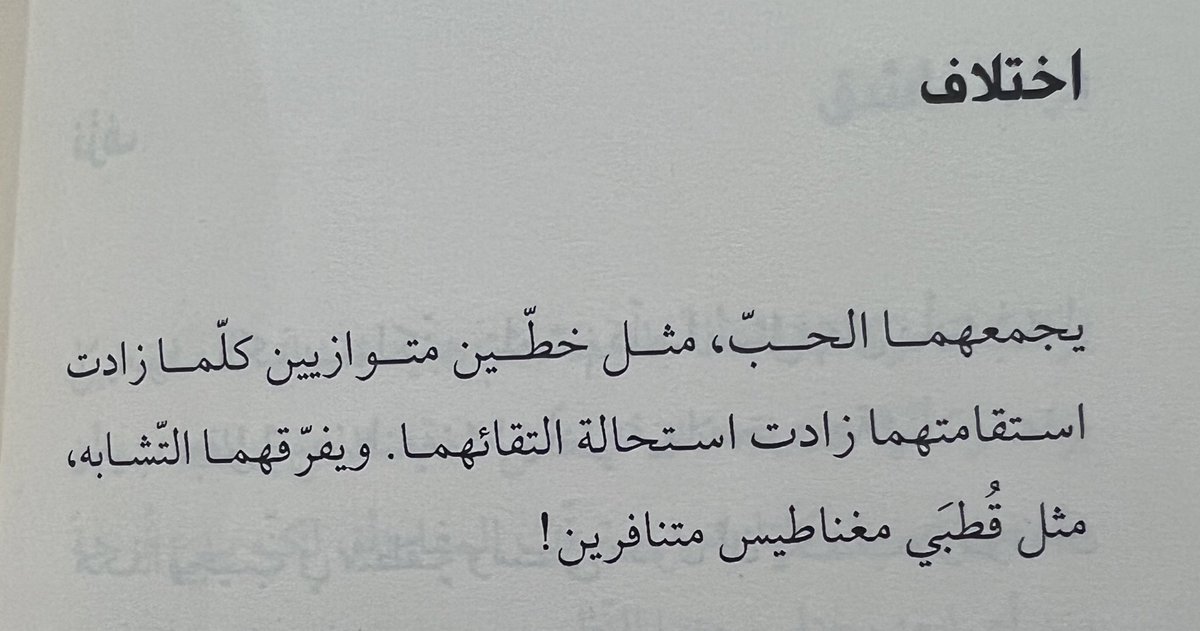 اختلاف
يجمعهما الحبّ، مثل خطّين متوازيين كلّما زادت
استقامتهما زادت استحالة التقائهما. ويفرّقهما التّشابه،
مثل قُطبَي مغناطيس متنافرين!